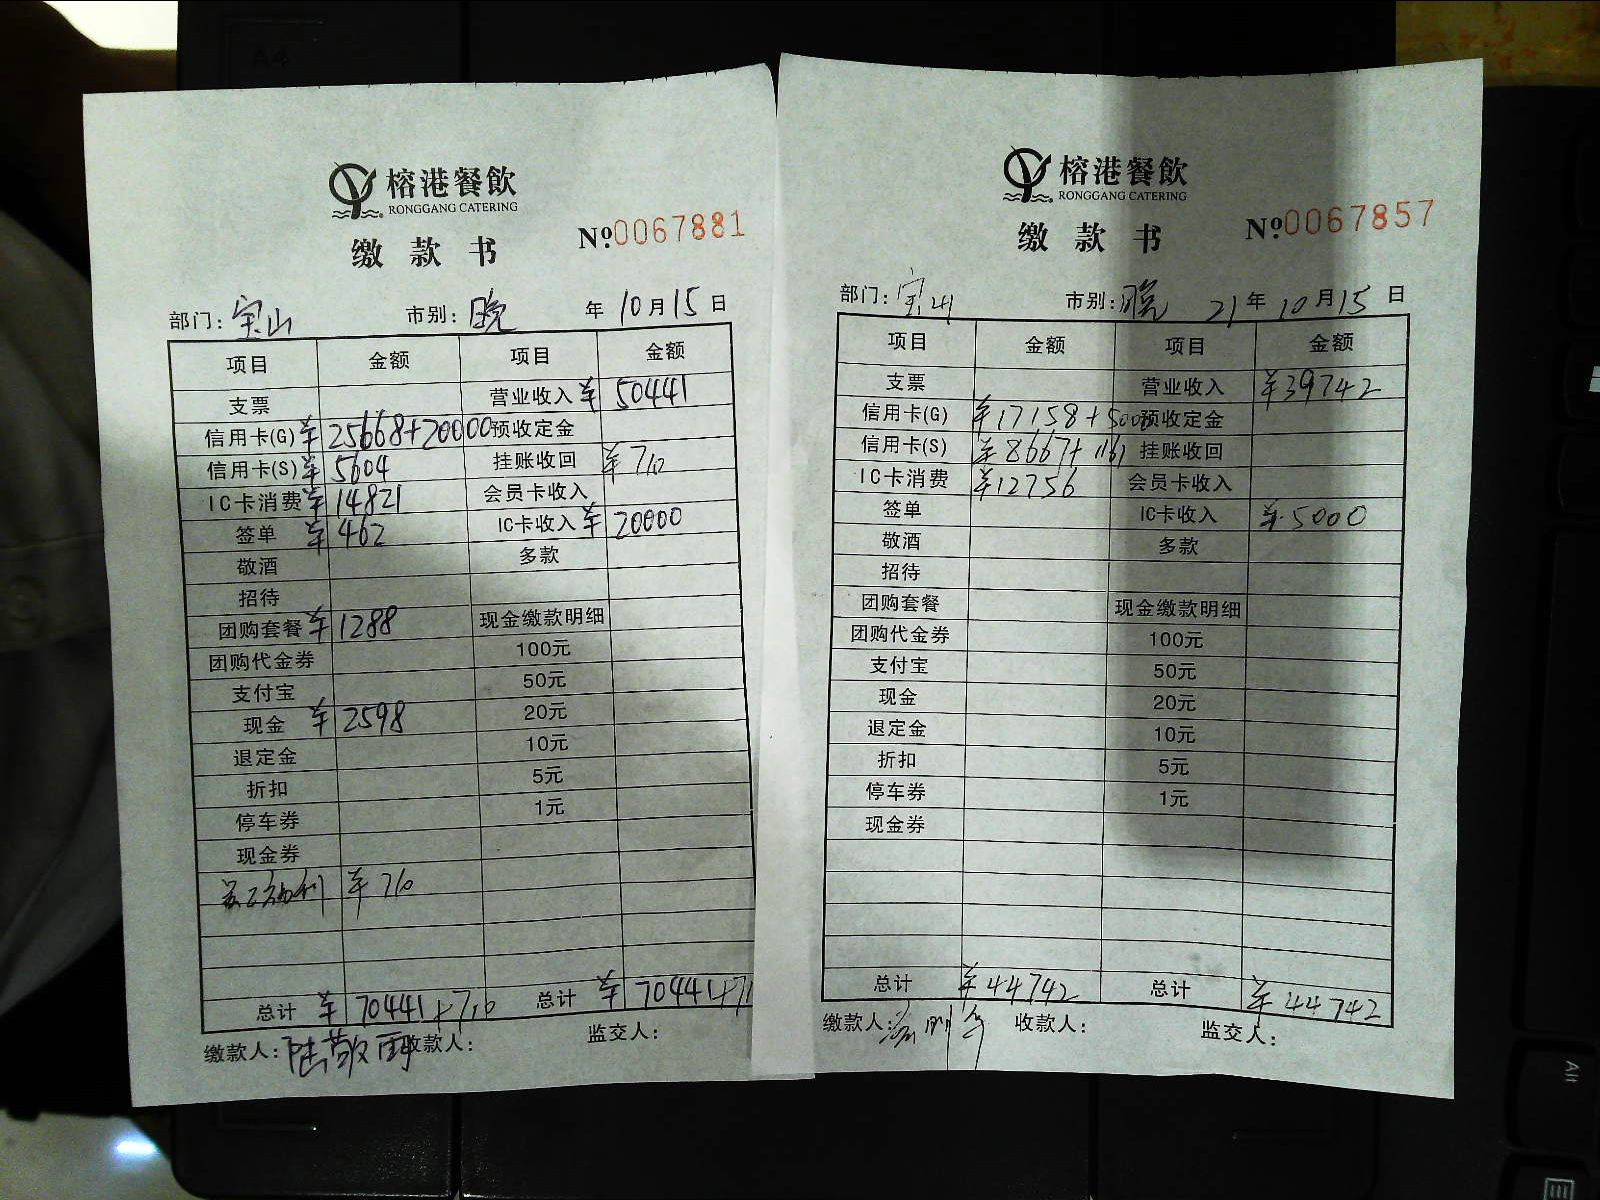 榕港餐飲
RONGGANG CATERING
缴款书
№.0067881
部门: 宝山 市别: 晚 年 10月15日
项目 金额 项目 金额
支票 营业收入 ¥50441
信用卡(G) ¥25668+20000 预收定金
信用卡(S) ¥5604 挂账收回 ¥710
IC卡消费 ¥14821 会员卡收入
签单 ¥462 IC卡收入 ¥20000
敬酒 多款
招待
团购套餐 ¥1288 现金缴款明细
团购代金券 100元
支付宝 50元
现金 ¥2598 20元
退定金 10元
折扣 5元
停车券 1元
现金券
¥710
总计 ¥70441+710 总计 ¥70441+71
缴款人: 陆敬雨 收款人: 监交人:
榕港餐飲
RONGGANG CATERING
缴款书
№.0067857
部门: 宝山 市别: 晚 21年10月15日
项目 金额 项目 金额
支票 营业收入 ¥39742
信用卡(G) ¥17158+5000 预收定金
信用卡(S) ¥8667+1161 挂账收回
IC卡消费 ¥12756 会员卡收入
签单 IC卡收入 ¥5000
敬酒 多款
招待
团购套餐 现金缴款明细
团购代金券 100元
支付宝 50元
现金 20元
退定金 10元
折扣 5元
停车券 1元
现金券
总计 ¥44742 总计 ¥44742
缴款人: 收款人: 监交人:
Alt